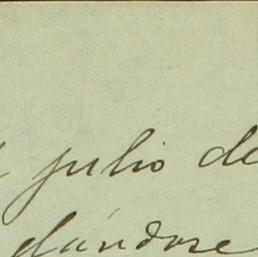 julio de
dándose